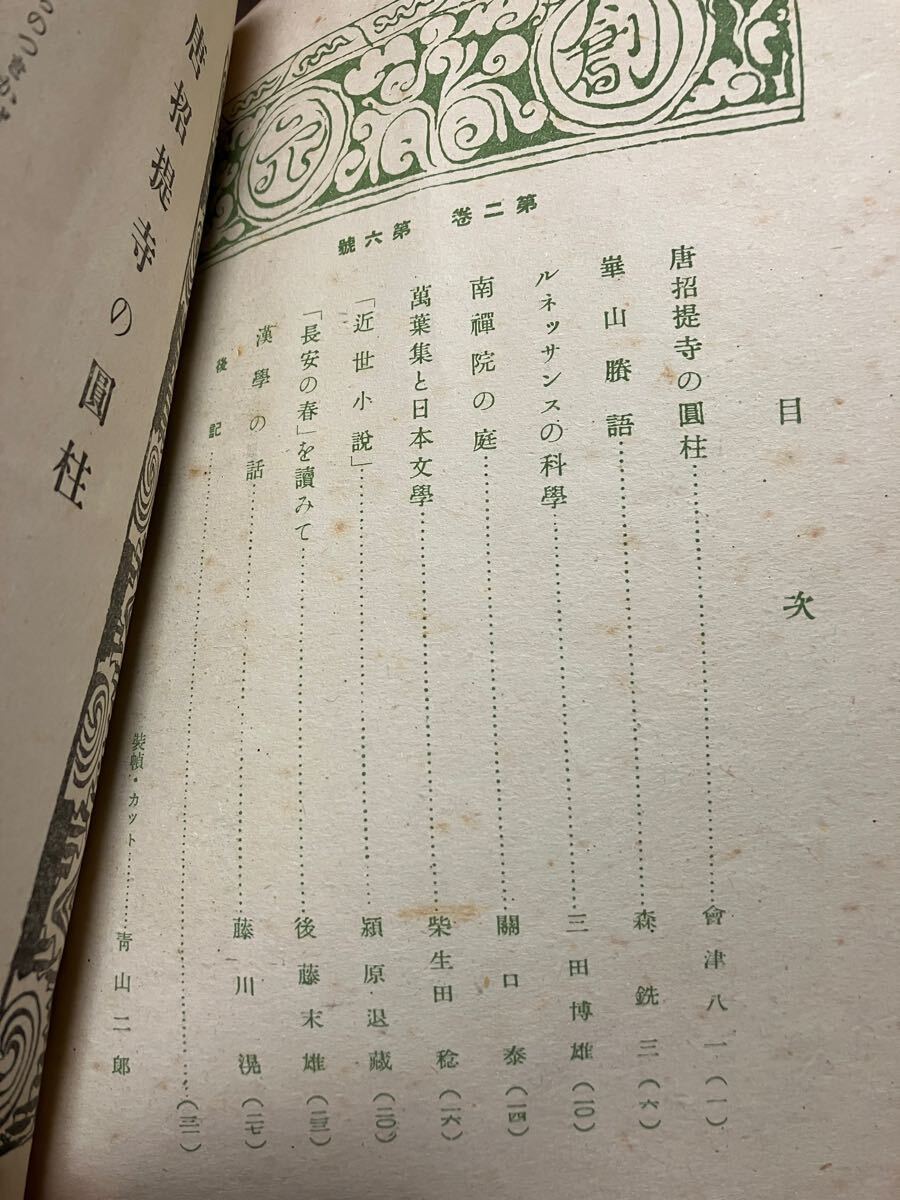 創元
第二卷 第六號
目次
唐招提寺の圓柱……會津八一(一)
崋山賸語……森銑三(六)
ルネッサンスの科學……三田博雄(一〇)
南禪院の庭……關口泰(一四)
萬葉集と日本文學……柴生田稔(一六)
「近世小說」……潁原退藏(二〇)
「長安の春」を讀みて……後藤末雄(二三)
漢學の話……藤川滉(二七)
後記……(三一)
裝幀・カット……青山二郎
唐招提寺の圓柱